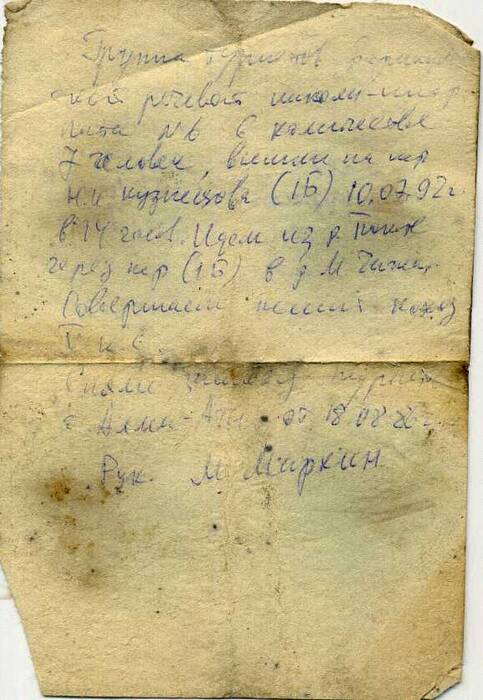 Группа туристов
речевой школы-интер
ната №6 в количестве
7 человек, вышли на пер
Н.И. Кузнецова (1Б) 10.07.92г.
в 14 часов. Идем из д.
через пер (1Б) в д. М.
Совершаем пеший поход
V к.с.
Сняли записку
г. Алма-Аты от 18.08.86г.
Рук. М. Маркин.